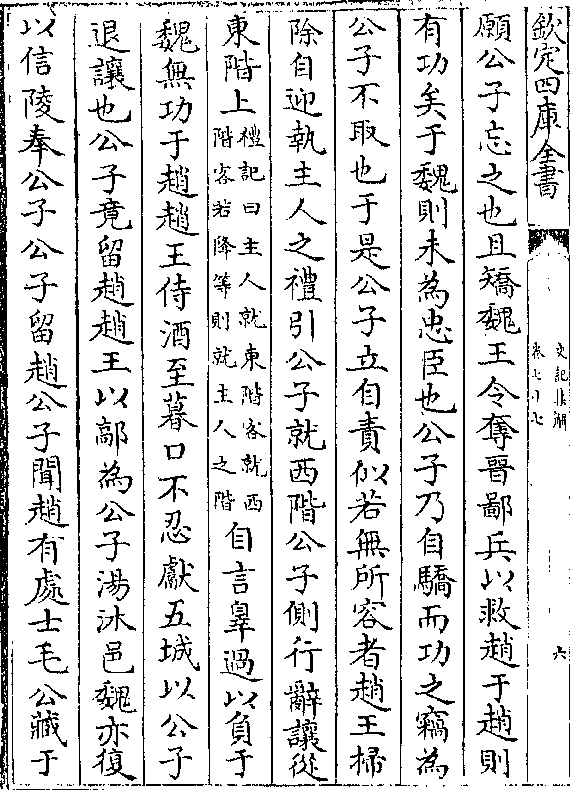 欽定四庫全書
史記集解
卷七十七
六
願公子忘之也且矯魏王令奪晉鄙兵以救趙于趙則
有功矣于魏則未為忠臣也公子乃自驕而功之竊為
公子不取也于是公子立自責似若無所容者趙王掃
除自迎執主人之禮引公子就西階公子側行辭讓從
東階上禮記曰主人就東階客就西階客若降等則就主人之階自言辠過以負于
魏無功于趙趙王侍酒至暮口不忍獻五城以公子
退讓也公子竟留趙趙王以鄗為公子湯沐邑魏亦復
以信陵奉公子公子留趙公子聞趙有處士毛公藏于